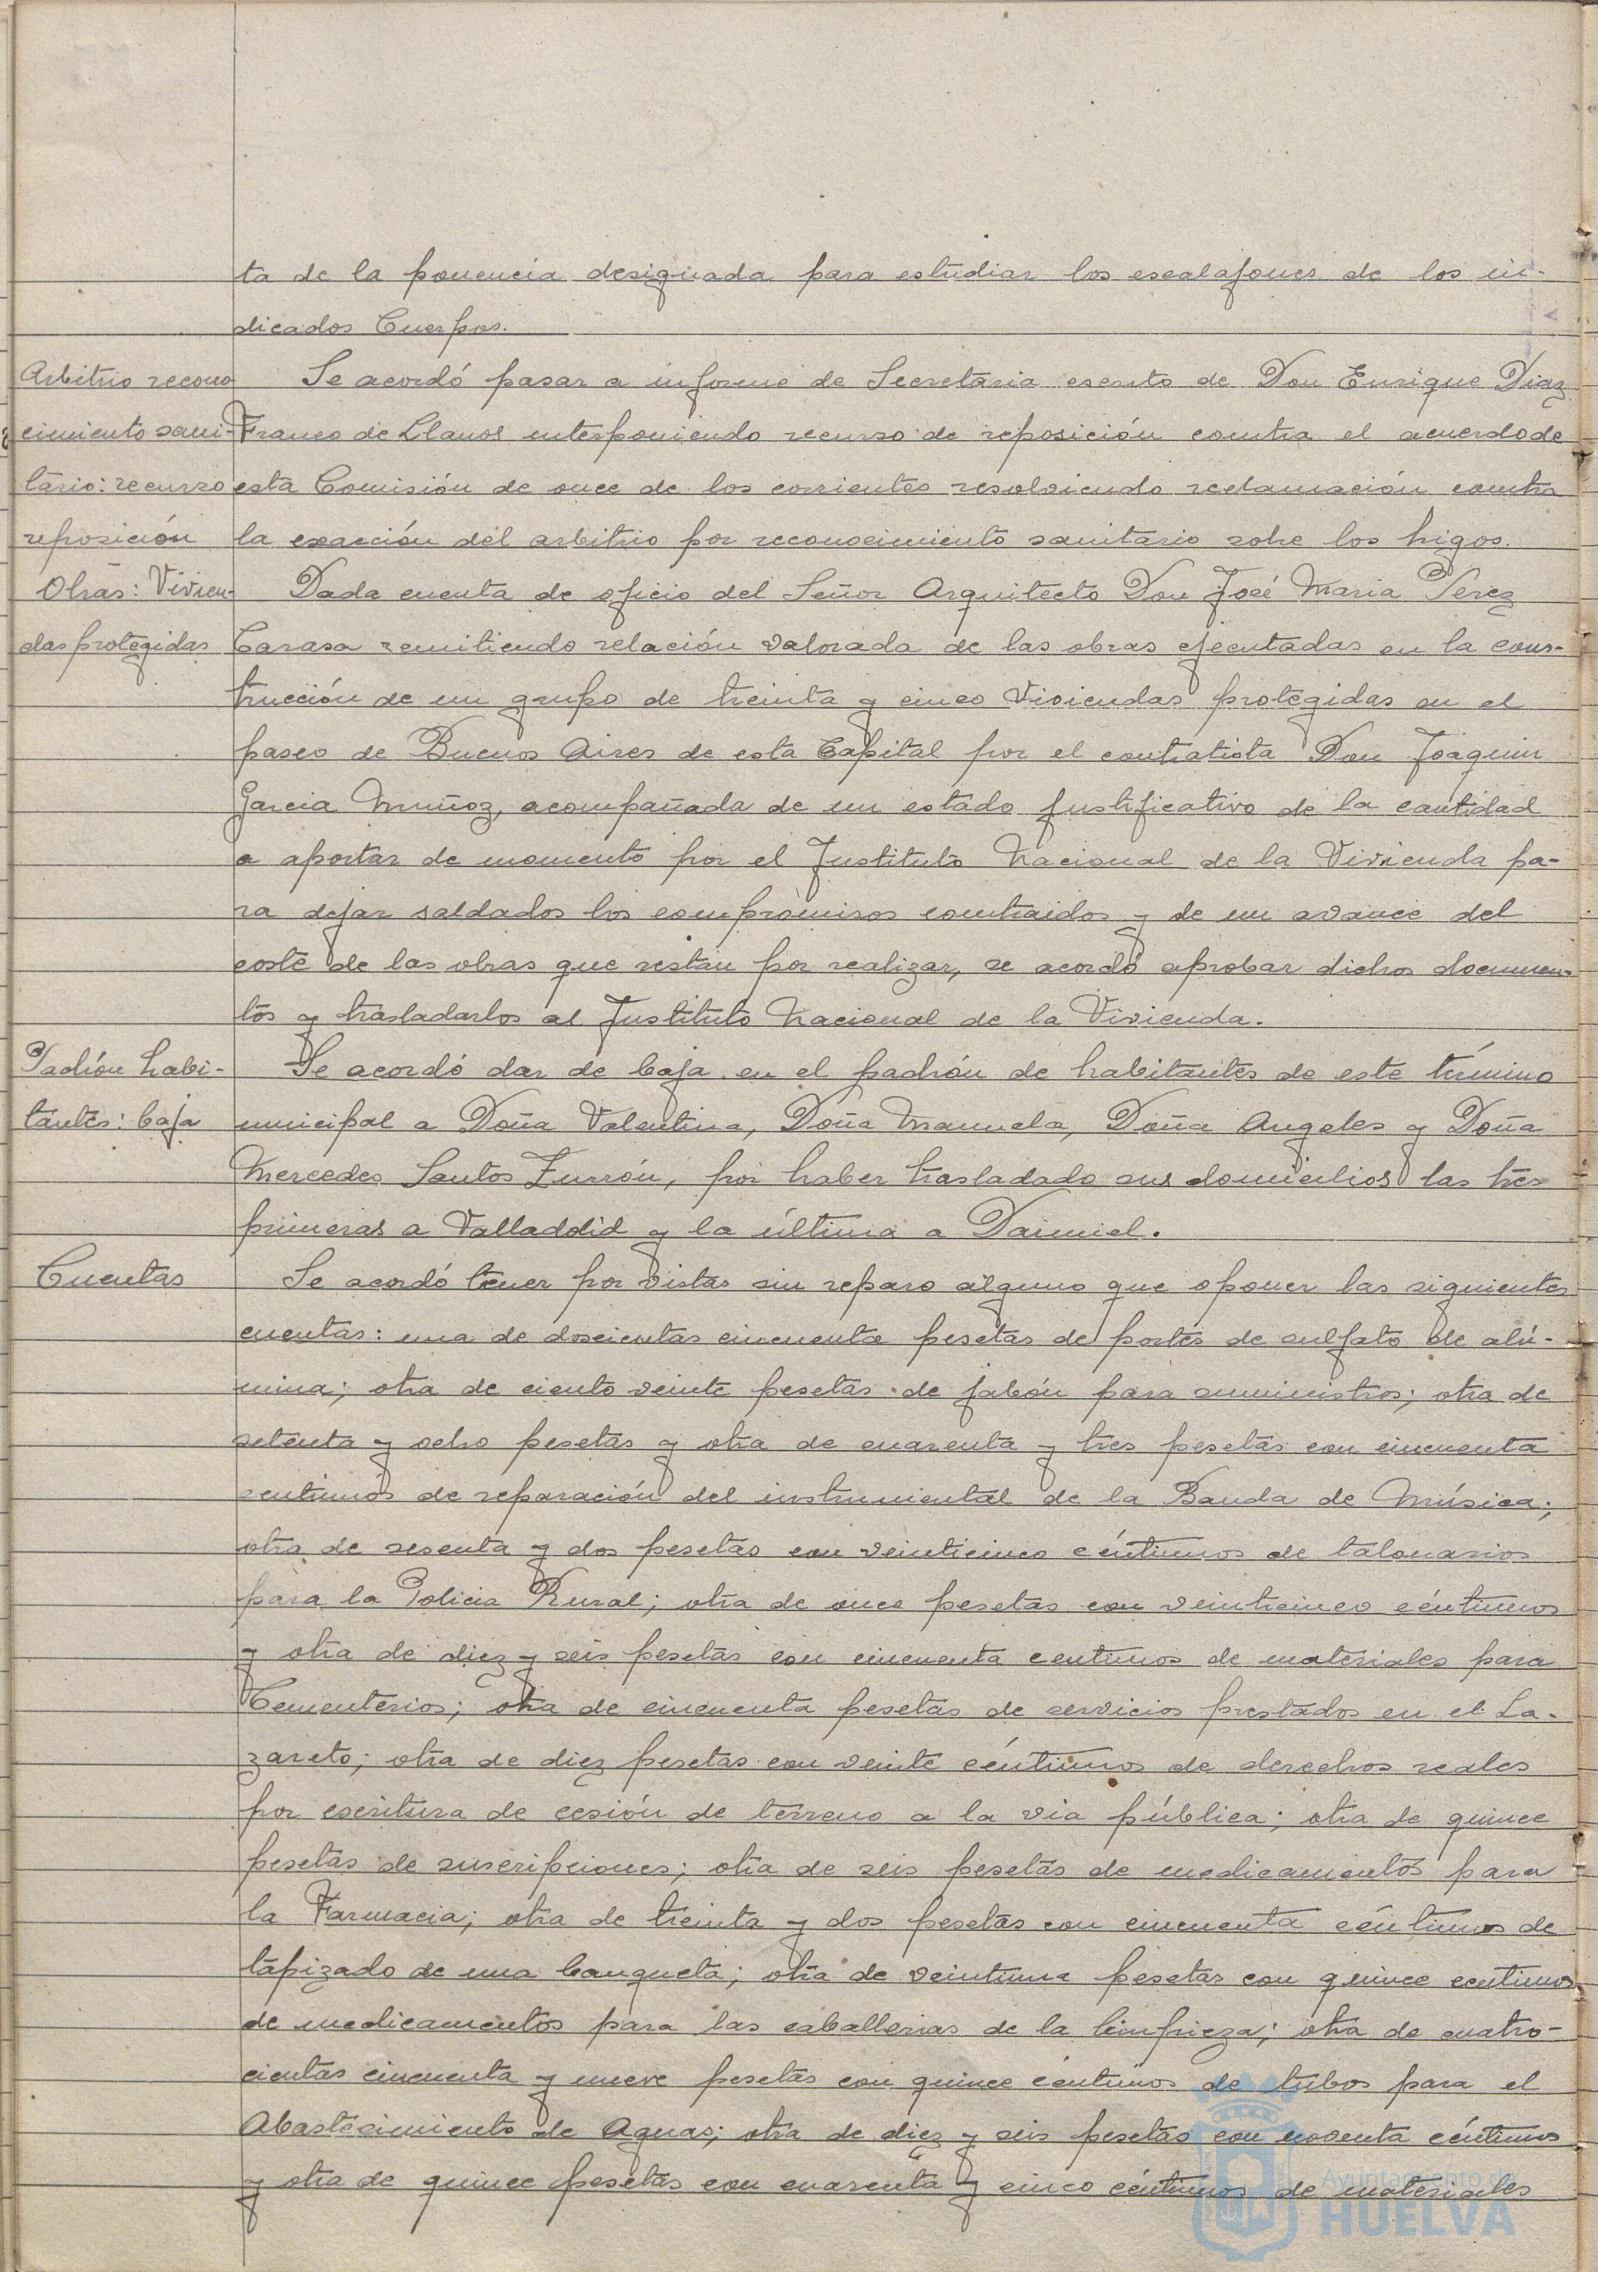 ta de la ponencia designada para estudiar los escalafones de los in-
dicados Cuerpos.
Arbitrio recono
cimiento sani-
tario: recurso
reposición
Se acordó pasar a informe de Secretaria escrito de Don Enrique Diaz
Franco de Llanos interponiendo recurso de reposición contra el acuerdo de
esta Comisión de once de los corrientes resolviendo reclamación contra
la exacción del arbitrio por reconocimiento sanitario sobre los higos.
Obras: Vivien-
das protegidas
Dada cuenta de oficio del Señor Arquitecto Don José Maria Perez
Carasa remitiendo relación valorada de las obras ejecutadas en la cons-
trucción de un grupo de treinta y cinco Viviendas protegidas en el
paseo de Buenos Aires de esta Capital por el contratista Don Joaquin
Garcia Muñoz, acompañada de un estado justificativo de la cantidad
a aportar de momento por el Instituto Nacional de la Vivienda pa-
ra dejar saldados los compromisos contraidos y de un avance del
coste de las obras que restan por realizar, se acordó aprobar dichos documen-
tos y trasladarlos al Instituto Nacional de la Vivienda.
Padrón habi-
tantes: baja
Se acordó dar de baja en el padrón de habitantes de este término
municipal a Doña Valentina, Doña Manuela, Doña Angeles y Doña
Mercedes Santos Zurrón, por haber trasladado sus domicilios las tres
primeras a Valladolid y la última a Daimiel.
Cuentas
Se acordó tener por vistas sin reparo alguno que oponer las siguientes
cuentas: una de doscientas cincuenta pesetas de portes de sulfato de alú-
mina; otra de ciento veinte pesetas de jabón para suministros; otra de
setenta y ocho pesetas y otra de cuarenta y tres pesetas con cincuenta
centimos de reparación del instrumental de la Banda de Música;
otra de sesenta y dos pesetas con veinticinco céntimos de talonarios
para la Policia Rural; otra de once pesetas con veinticinco céntimos
y otra de diez y seis pesetas con cincuenta centimos de materiales para
Cementerios; otra de cincuenta pesetas de servicios prestados en el La-
zareto; otra de diez pesetas con veinte céntimos de derechos reales
por escritura de cesión de terreno a la via pública; otra de quince
pesetas de suscripciones; otra de seis pesetas de medicamentos para
la Farmacia; otra de treinta y dos pesetas con cincuenta céntimos de
tapizado de una banqueta; otra de veintiuna pesetas con quince centimos
de medicamentos para las caballerias de la limpieza; otra de cuatro-
cientas cincuenta y nueve pesetas con quince céntimos de tubos para el
Abastecimiento de Aguas; otra de diez y seis pesetas con noventa céntimos
y otra de quince pesetas con cuarenta y cinco céntimos de materiales
Ayuntamiento de
HUELVA